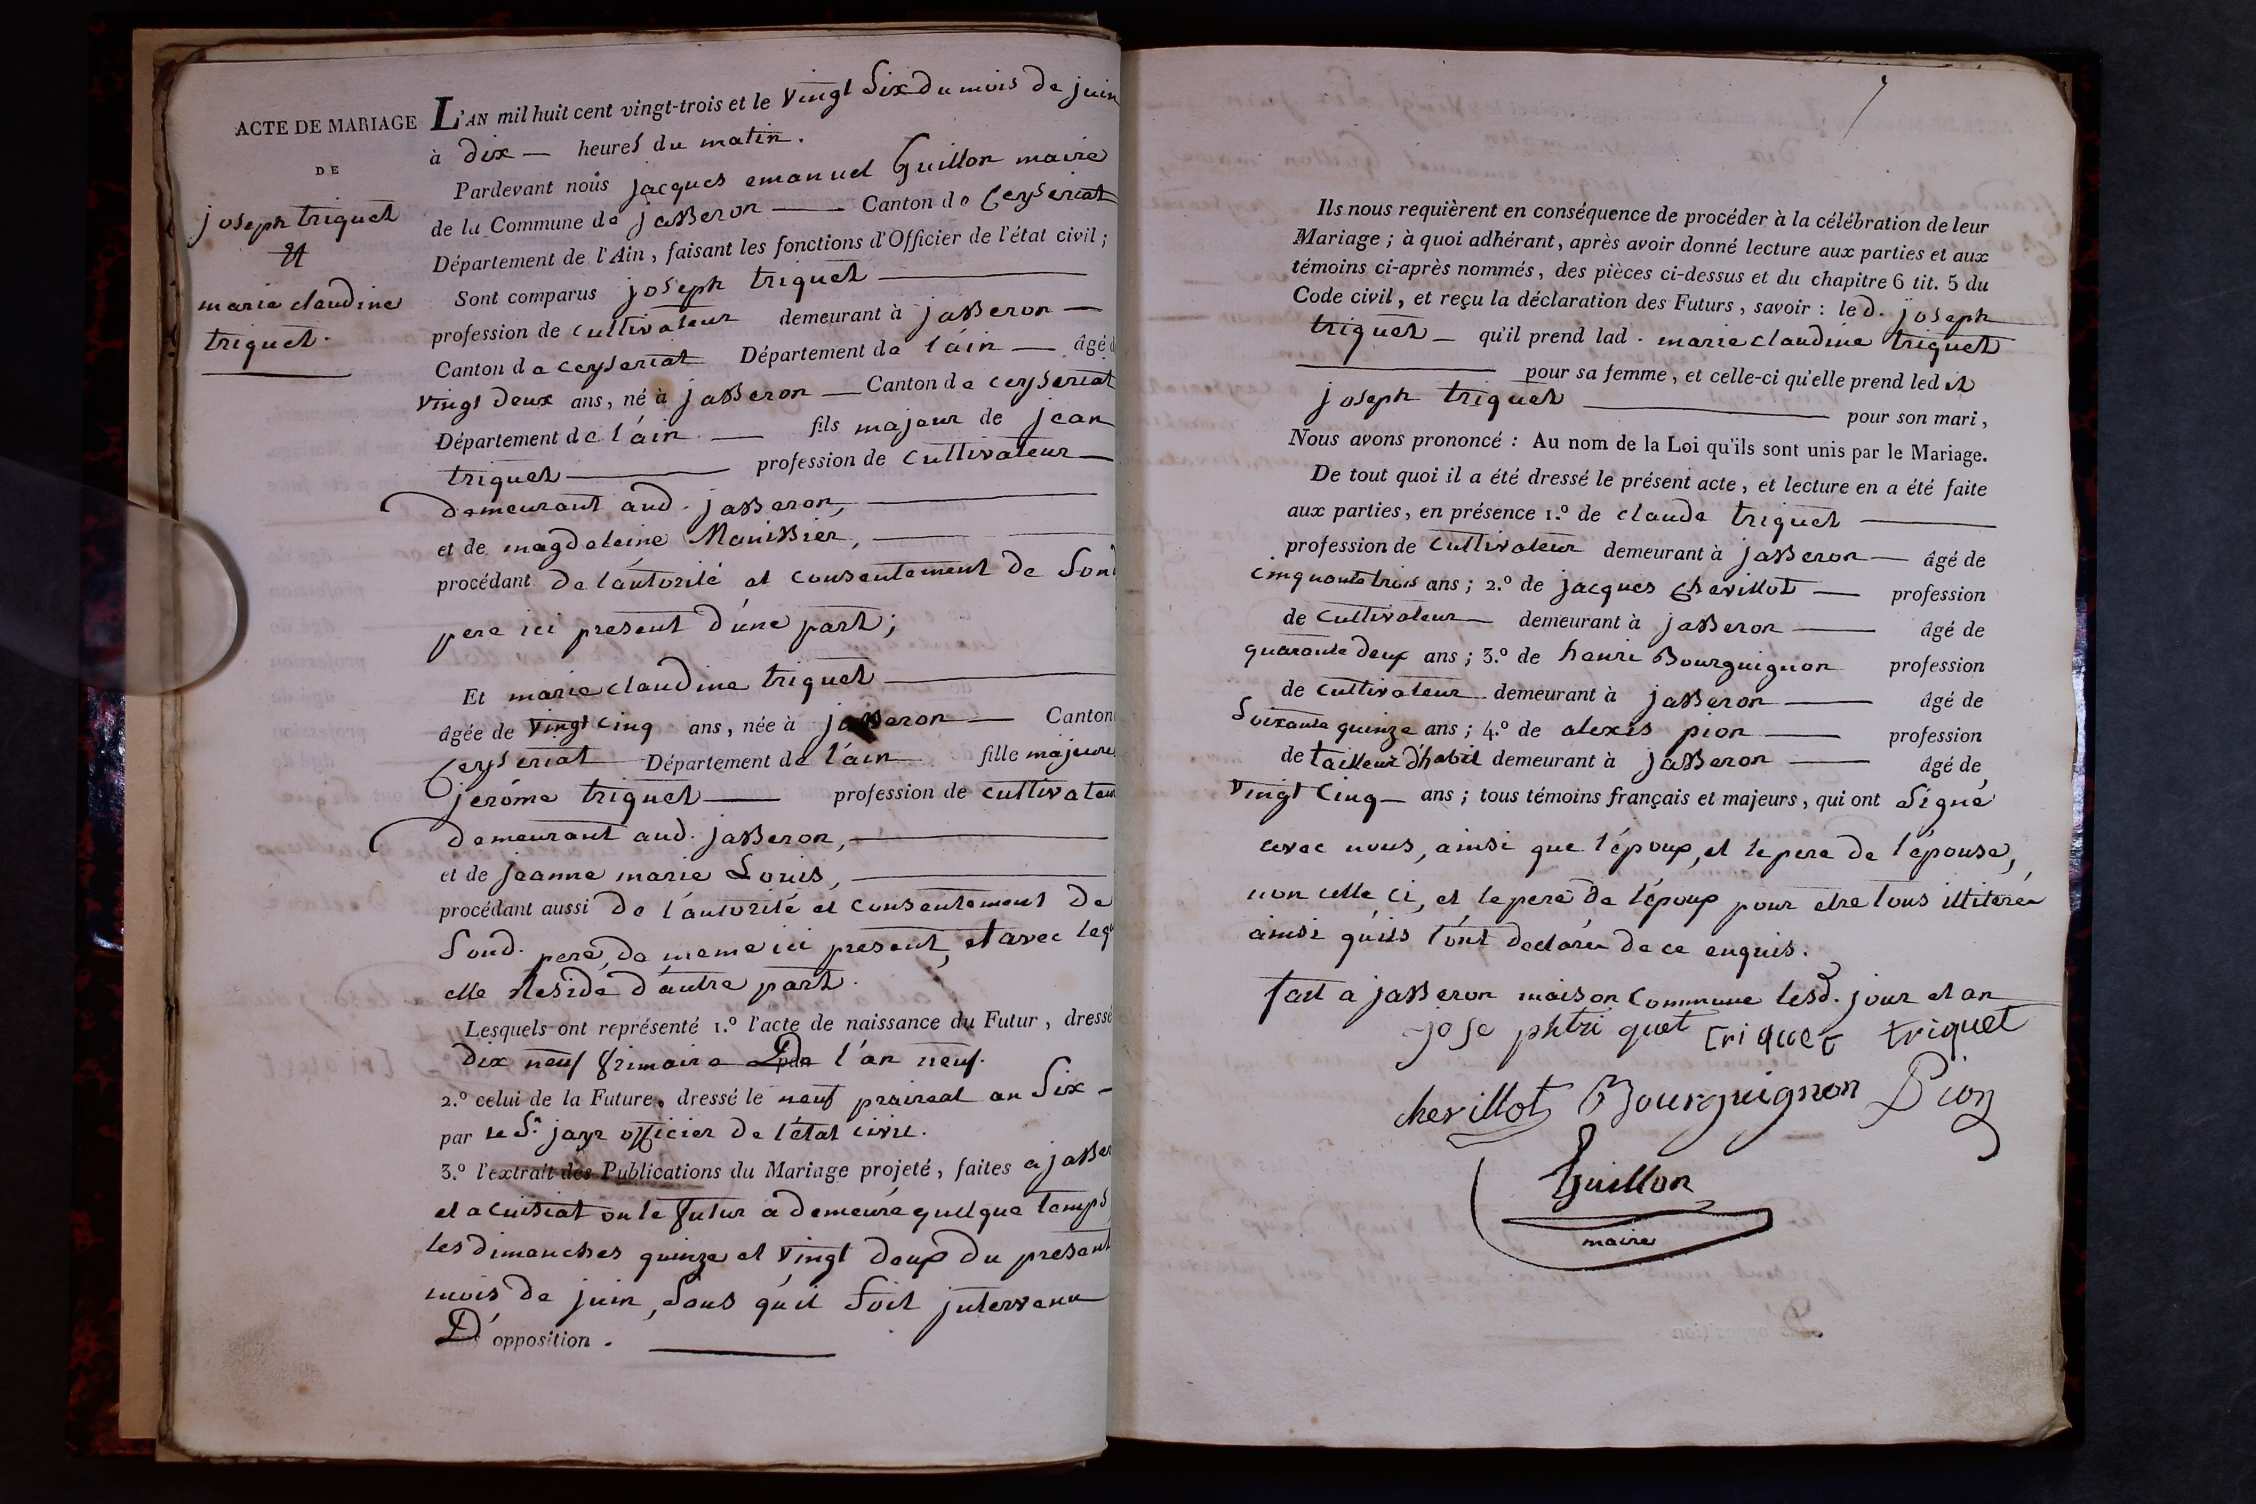 ACTE DE MARIAGE
DE
joseph triquet
et
marie claudine
triquet.
L'AN mil huit cent vingt-trois et le vingt Six du mois de juin
à dix — heures du matin.
Pardevant nous jacques emanuel Guillon maire
de la Commune de jasseron — Canton de Ceyseriat
Département de l'Ain, faisant les fonctions d'Officier de l'état civil;
Sont comparus joseph triquet —
profession de cultivateur demeurant à jasseron —
Canton de ceyseriat Département de l'áin — âgé d
vingt deux ans, né à jasseron — Canton de ceyseriat
Département de l'áin — fils majeur de jean
triquet — profession de cultivateur —
demeurant aud. jasseron, —
et de magdeleine Manissier, —
procédant de l'autorité et consentement de Son
pere ici present d'úne part;
Et marie claudine triquet —
âgée de vingt cinq ans, née à jasseron — Canton
Ceyseriat Département de l'áin fille majeure
jeróme triquet — profession de cultivateur
demeurant aud. jasseron, —
et de jeanne marie Louis, —
procédant aussi de l'autorité et consentement de
Sond. pere, de meme ici present, et avec leq
elle Reside d'áutre part.
Lesquels ont représenté 1.º l'acte de naissance du Futur, dressé
dix neuf frimaire Dpar l'an neuf.
2.º celui de la Future, dressé le neuf praireal an Six —
par le Sr. jayr officier de l'état civil.
3.º l'extrait des Publications du Mariage projeté, faites a jasser
et a cuisiat ou le futur a demeuré quelque temps
les dimanches quinze et vingt deux du present
mois de juin, Sans qu'il Soit jntervenu
D'opposition. —
Ils nous requièrent en conséquence de procéder à la célébration de leur
Mariage; à quoi adhérant, après avoir donné lecture aux parties et aux
témoins ci-après nommés, des pièces ci-dessus et du chapitre 6 tit. 5 du
Code civil, et reçu la déclaration des Futurs, savoir: led. joseph
triquet — qu'il prend lad. marie claudine triquet
— pour sa femme, et celle-ci qu'elle prend led it
joseph triquet — pour son mari,
Nous avons prononcé: Au nom de la Loi qu'ils sont unis par le Mariage.
De tout quoi il a été dressé le présent acte, et lecture en a été faite
aux parties, en présence 1.º de claude triquet —
profession de cultivateur demeurant à jasseron — âgé de
cinquante trois ans; 2.º de jacques Chevillot — profession
de cultivateur — demeurant à jasseron — âgé de
quarante deux ans; 3.º de henri Bourguignon profession
de cultivateur demeurant à jasseron — âgé de
Soixante quinze ans; 4.º de alexis pion — profession
de tailleur d'habit demeurant à jasseron — âgé de
vingt Cinq — ans; tous témoins français et majeurs, qui ont Signé
avec nous, ainsi que l'époux, et le pere de l'épouse,
non celle ci, et le pere de l'époux pour etre tous illiterés
ainsi qu'ils l'ont declarés de ce enquis.
fait a jasseron maison Commune lesd. jour et an
jose phtri quet triquet triquet
chevillot Bourguignon Pion
Guillon
maire